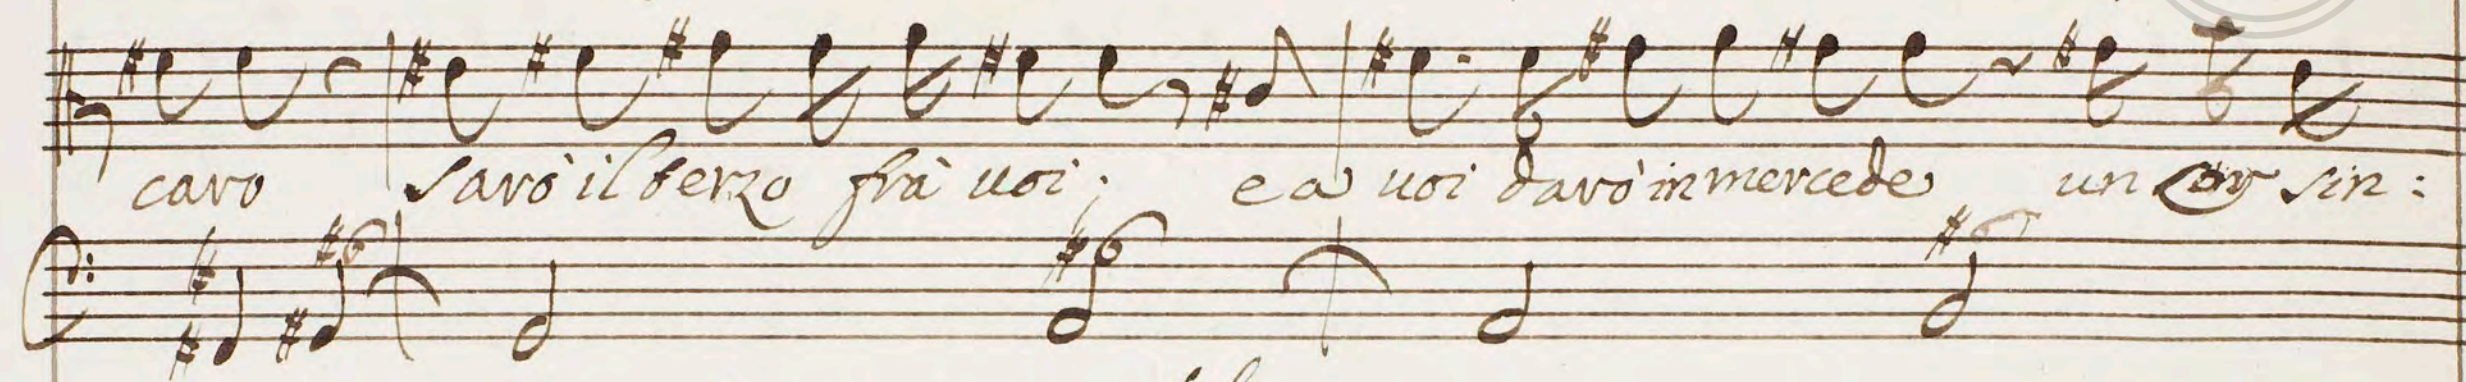 caro sarò il terzo frà voi; e a voi darò in mercede un cor sin: